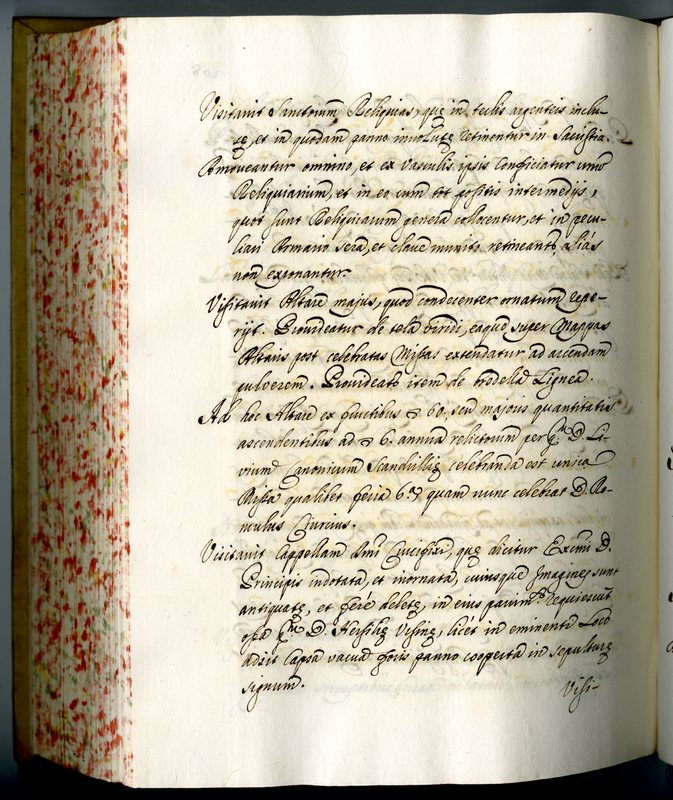 Visitavit Sanctorum Reliquias, quę in techis argenteis inclu-
sę, et in quodam panno involutę retinentur in Sacristia.
Amoveantur omnino, et ex Vasculis ipsis conficiatur unum
Reliquiarium, et in eo cum tot positis intermedijs,
quot sunt Reliquiarum genera collocentur, et in pecu-
liari Armario sera, et clave munito retineantr, aliàs
non exponantur.
Visitavit Altare majus, quod condecenter ornatum repe-
rijt. Provideatur de tela viridi, eaque super Mappas
Altaris post celebratas Missas extendatur ad arcendam
pulverem. Provideatr item de bredella Lignea.
Ad hoc Altare ex fructibus 60, seu majoris quantitatis
ascendentibus ad 6. annua relictorum per D. Li-
vium Canonicum Scandillię celebranda est unica
Missa qualibet feria 6.a, quam nunc celebrat D. Ro-
mulus Curcius.
Visitavit Cappellam Smi Crucifixi, quę dicitur Excmi D.
Principis indotata, et inornata, cuiusque Imagines sunt
antiquatę, et ferè deletę, in eius pavimto requiescunt
ossa D. Hersilię Ursinę, licet in eminenti Loco
adsit Capsa vacua foris panno cooperta in sepulturę
signum.
Visi-